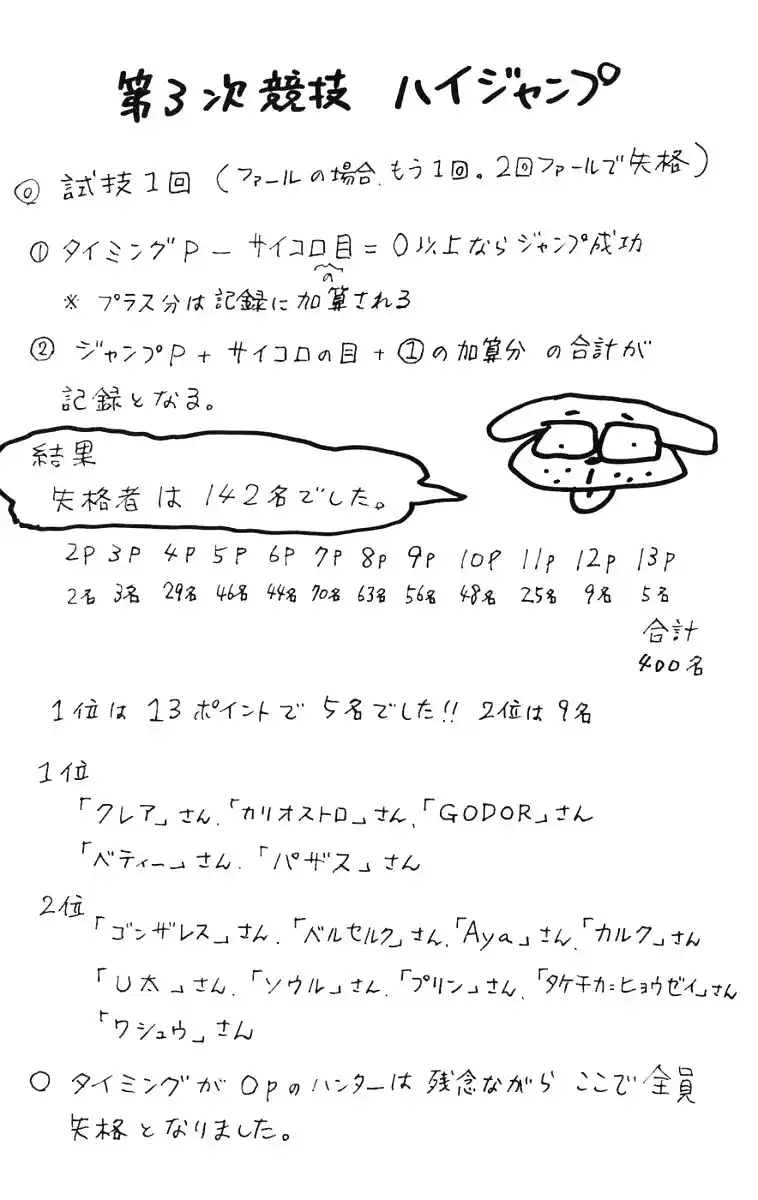 第3次競技 ハイジャンプ
◎ 試技1回（ファールの場合、もう1回。2回ファールで失格）
① タイミングP － サイコロの目 = 0以上ならジャンプ成功
※ プラス分は記録に加算される
② ジャンプP + サイコロの目 + ①の加算分 の合計が
記録となる。
結果
失格者は 142名でした。
2P 3P 4P 5P 6P 7P 8P 9P 10P 11P 12P 13P
2名 3名 29名 46名 44名 70名 63名 56名 48名 25名 9名 5名
合計
400名
1位は 13ポイントで 5名でした!! 2位は 9名
1位
「クレア」さん、「カリオストロ」さん、「GODOR」さん
「ベティー」さん、「パザス」さん
2位
「ゴンザレス」さん、「ベルセルク」さん、「Aya」さん、「カルク」さん
「U太」さん、「ソウル」さん、「プリン」さん、「タケチカ=ヒョウゼイ」さん
「ワシュウ」さん
○ タイミングが 0Pのハンターは 残念ながら ここで全員
失格となりました。